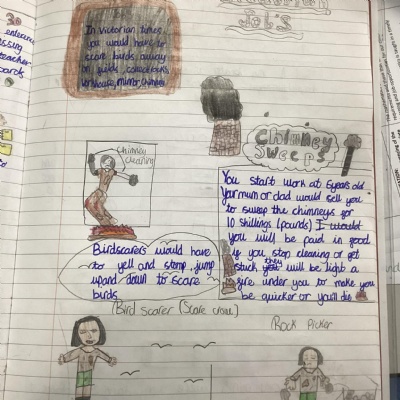 30
Victorian
Job's
In Victorian times
you would have to
scare birds away
on fields
mirror, chimney
teacher
Chimney
Sweeps
Chimney
Cleaning
You start work at 5 years old
Your mum or dad would sell you
to sweep the chimneys for
10 shillings (pounds) I would
you will be paid in good
if you stop cleaning or get
stuck they will be light a
fire under you to make you
be quicker or you'll die
Birdscarers would have
to yell and stomp, jump
up and down to scare
birds
(Bird Scarer (Scare crow)
Rock Picker